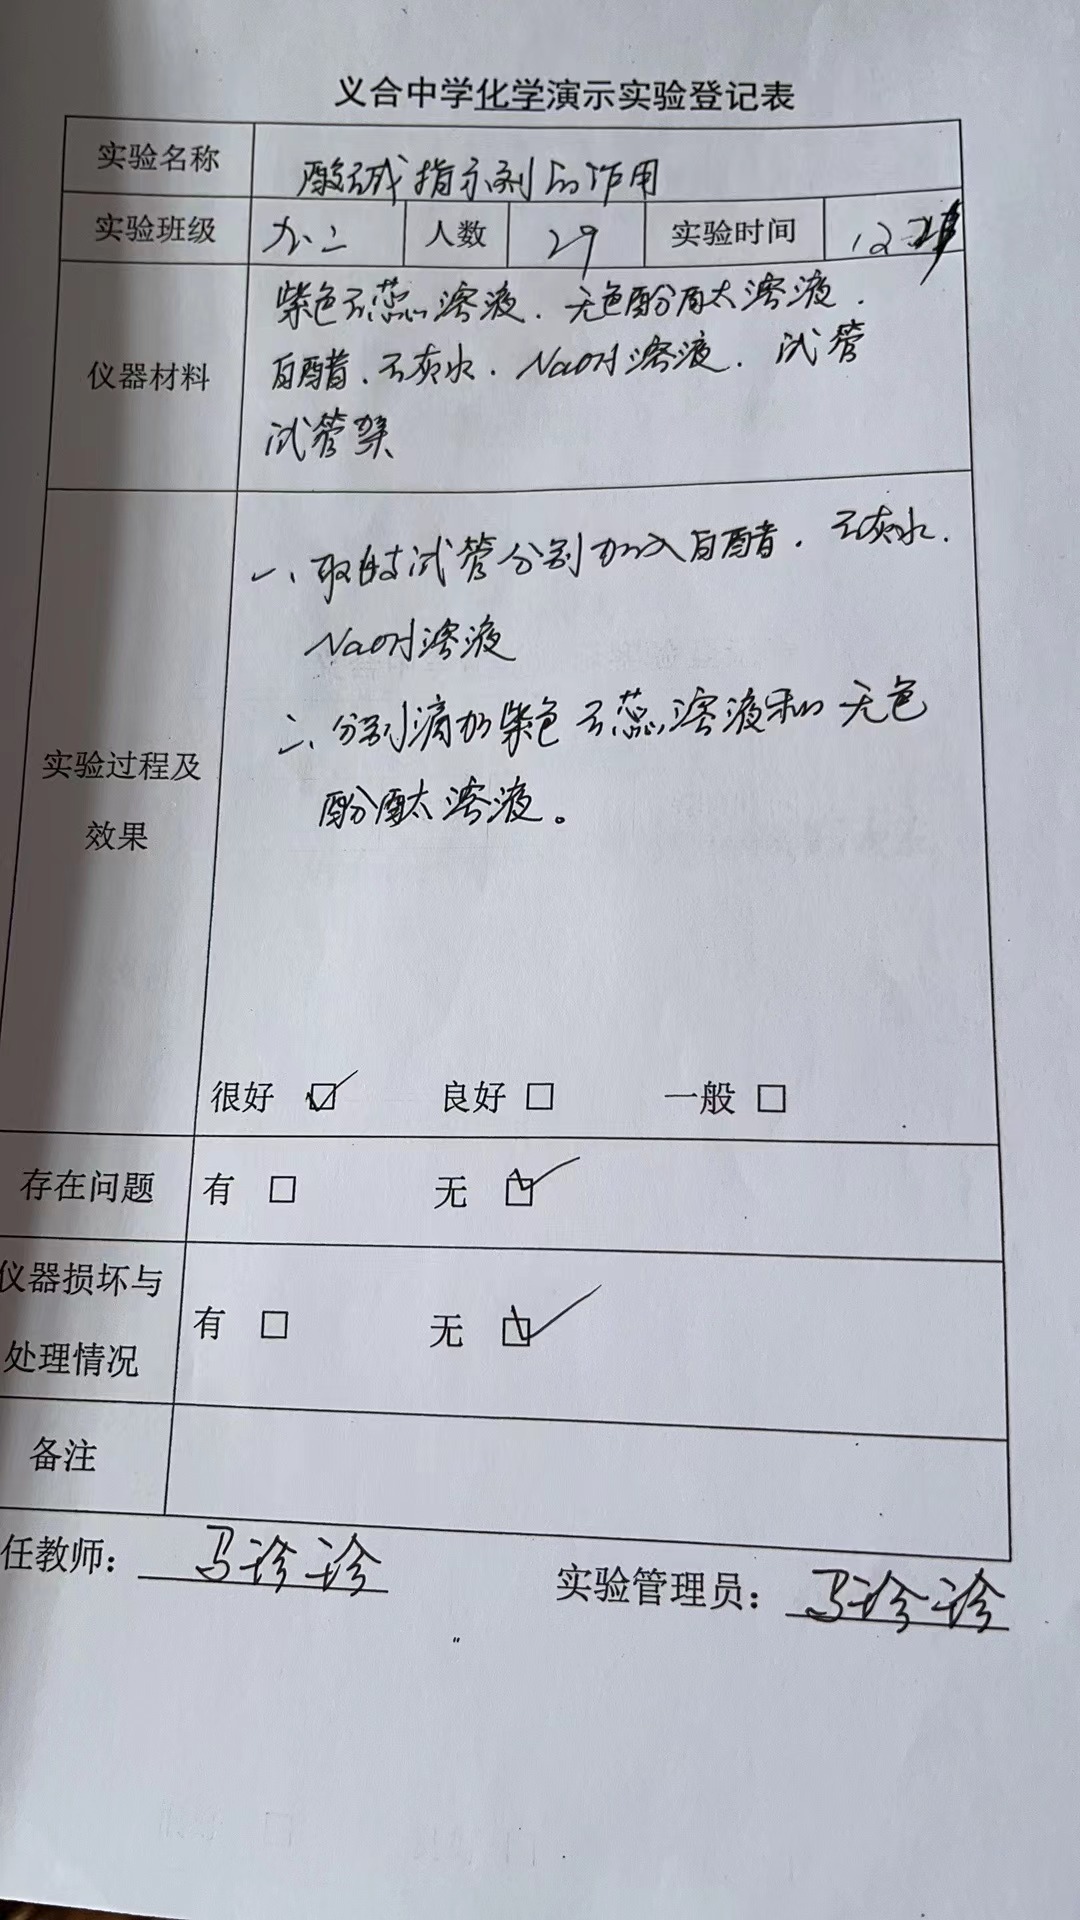 义合中学化学演示实验登记表
实验名称 酸碱指示剂的作用
实验班级 九.二 人数 29 实验时间 12
仪器材料
紫色石蕊溶液.无色酚酞溶液.
白醋.石灰水.NaOH溶液.试管
试管架
实验过程及
效果
一、取3支试管分别加入白醋.石灰水.
NaOH溶液
二、分别滴加紫色石蕊溶液和无色
酚酞溶液。
很好 ☑ 良好 □ 一般 □
存在问题 有 □ 无 ☑
仪器损坏与
处理情况
有 □ 无 ☑
备注
任教师: 马诊诊 实验管理员: 马诊诊